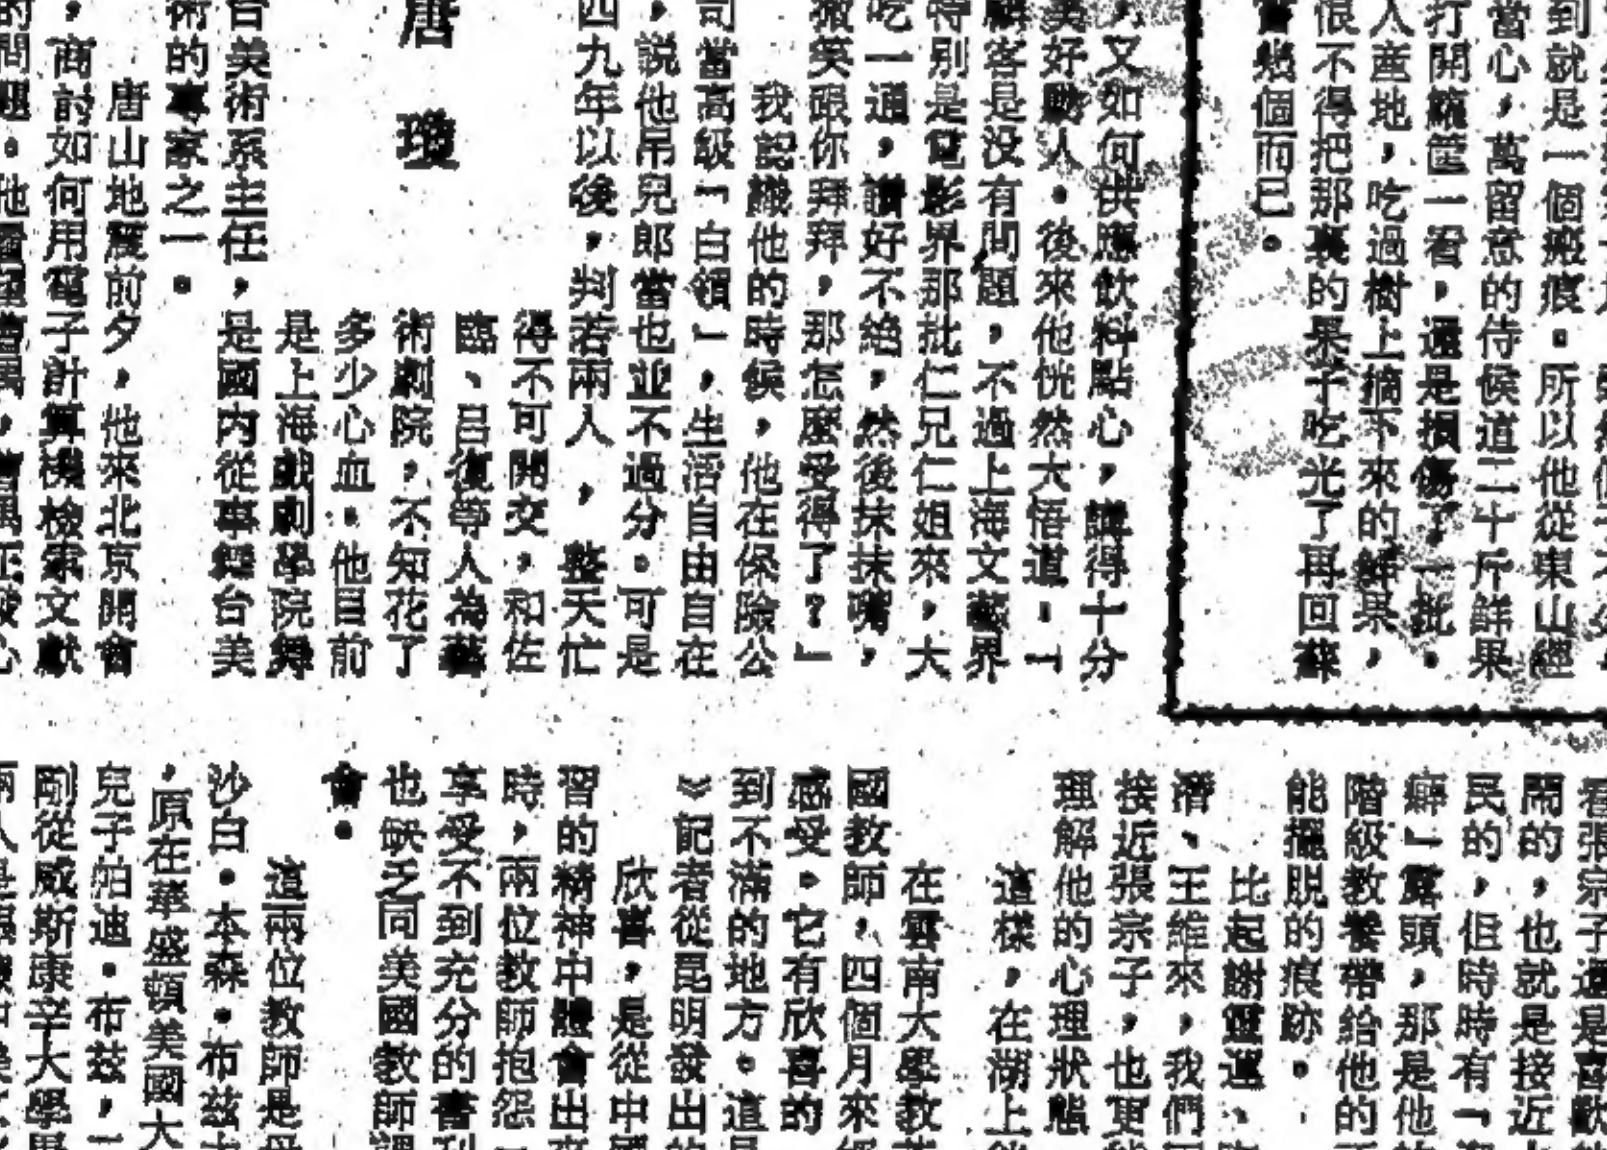 到就是一個瘢痕。所以他從東山經
當心，萬留意的侍候道二十斤鮮果
打開籮筐一看，還是損傷了一批。
入產地，吃過樹上摘下來的鮮果，
恨不得把那裏的果子吃光了再回蘇
幾個而已。
，又如何供應飲料點心，講得十分
美好動人。後來他恍然大悟道：「
顧客是没有問題，不過上海文藝界
特别是電影界那批仁兄仁姐來，大
吃一通，讚好不絶，然後抹抹嘴，
微笑跟你拜拜，那怎麽受得了？」
我認識他的時候，他在保險公
司當高級「白領」，生活自由自在
，説他吊兒郎當也並不過分。可是
四九年以後，判若兩人，整天忙
得不可開交，和佐
臨、吕復等人為藝
術劇院，不知花了
多少心血。他目前
是上海戲劇學院舞
台美術系主任，是國内從事舞台美
術的專家之一。
唐瓊
唐山地震前夕，他來北京開會
，商討如何用電子計算機檢索文獻
的問題。
看張宗子還是喜歡
鬧的，也就是接近
民的，但時時有「
癖」露頭，那是他
階級教養帶給他的
能擺脱的痕跡。
比起謝靈運、
潛、王維來，我們
接近張宗子，也更
理解他的心理狀態
這樣，在湖上
在雲南大學教
國教師，四個月來
感受。它有欣喜的
到不滿的地方。這
《記者從昆明發出的
欣喜，是從中國
習的精神中體會出來
時，兩位教師抱怨
享受不到充分的書刊
也缺乏同美國教師
會。
這兩位教師是
沙白·本森·布兹
，原在華盛頓美國大
兒子帕迪·布兹，一
剛從威斯康辛大學畢